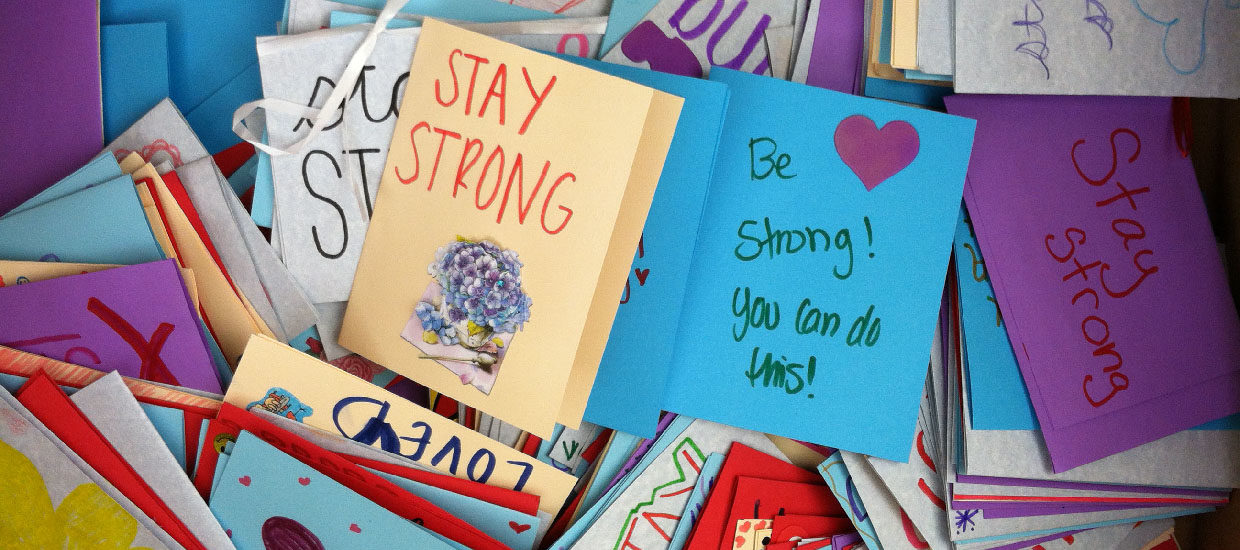 STAY
STRONG
Be
Strong!
you can do
this!
Stay
Strong
sta
ST
LOVED